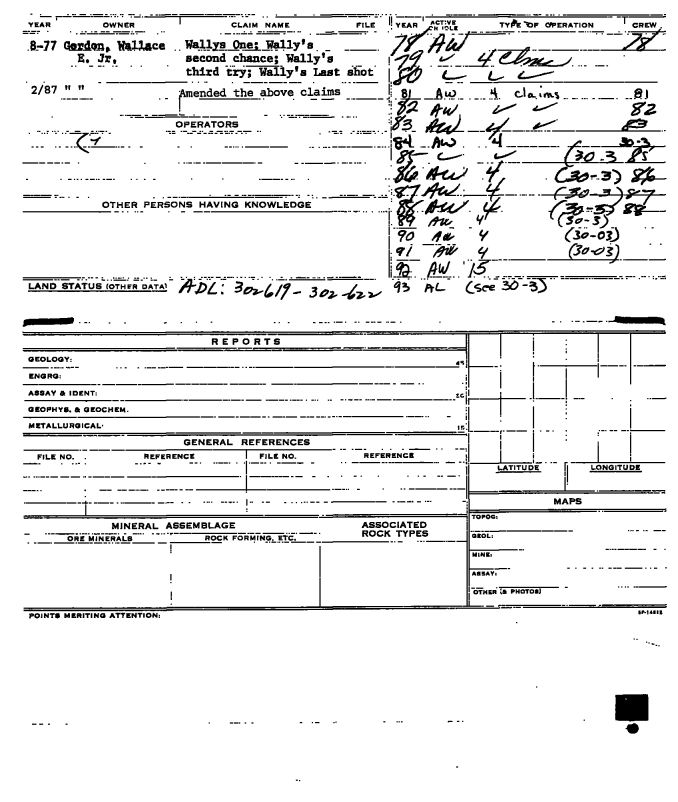 YEAR OWNER CLAIM NAME FILE YEAR ACTIVE OR IDLE TYPE OF OPERATION CREW
8-77 Gordon, Wallace E. Jr.
Wallys One; Wally's
second chance; Wally's
third try; Wally's Last shot
2/87 " " Amended the above claims
OPERATORS
OTHER PERSONS HAVING KNOWLEDGE
LAND STATUS (OTHER DATA) ADL: 302619-302622
78 AW 78
79 ✓ 4 Clms
80 ✓ ✓ ✓
81 AW 4 claims 81
82 AW ✓ ✓ 82
83 AW 4 ✓ 83
84 AW 4 30-3
85 ✓ ✓ (30-3 85
86 AW 4 (30-3) 86
87 AW 4 (30-3) 87
88 AW 4 (30-3) 88
89 AW 4 (30-3)
90 AW 4 (30-03)
91 AW 4 (30-03)
92 AW 15
93 AL (see 30-3)
REPORTS
GEOLOGY:
ENGRG:
ASSAY & IDENT:
GEOPHYS. & GEOCHEM.
METALLURGICAL:
GENERAL REFERENCES
FILE NO. REFERENCE FILE NO. REFERENCE
LATITUDE LONGITUDE
MAPS
TOPOG:
GEOL:
MINE:
ASSAY:
OTHER (& PHOTOS)
MINERAL ASSEMBLAGE
ORE MINERALS ROCK FORMING, ETC.
ASSOCIATED
ROCK TYPES
POINTS MERITING ATTENTION: